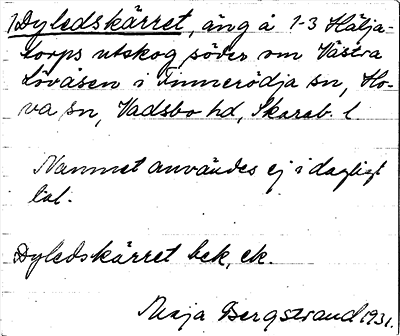 1) Dyledskärret, äng å 1-3 Hälja-
torps utskog söder om Västra
Lövåsen i Finnerödja sn, Ho-
va sn, Vadsbo hd, Skarab. l.
Namnet användes ej i dagligt
tal.
Dyledskärret bek, ek.
Maja Bergstrand 1931.